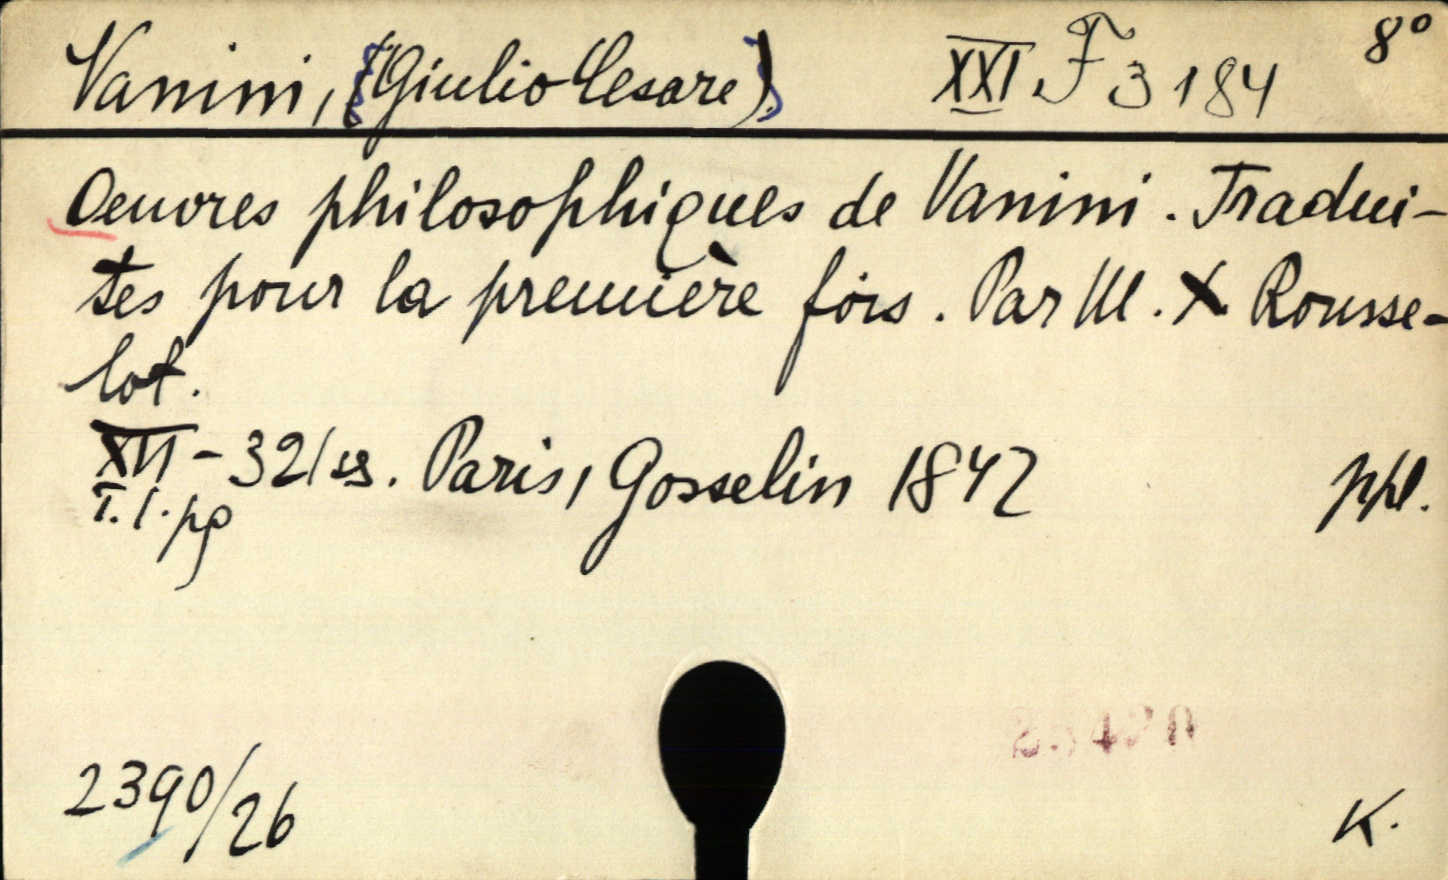 Vanini, (Giulio Cesare) XXI F 3 184 8°
Oeuvres philosophiques de Vanini. Tradui-
tes pour la première fois. Par M. X. Rousse-
lot.
XVI-321 ss. Paris, Gosselin 1842 ppl.
T. l. pg
2390/26
K.